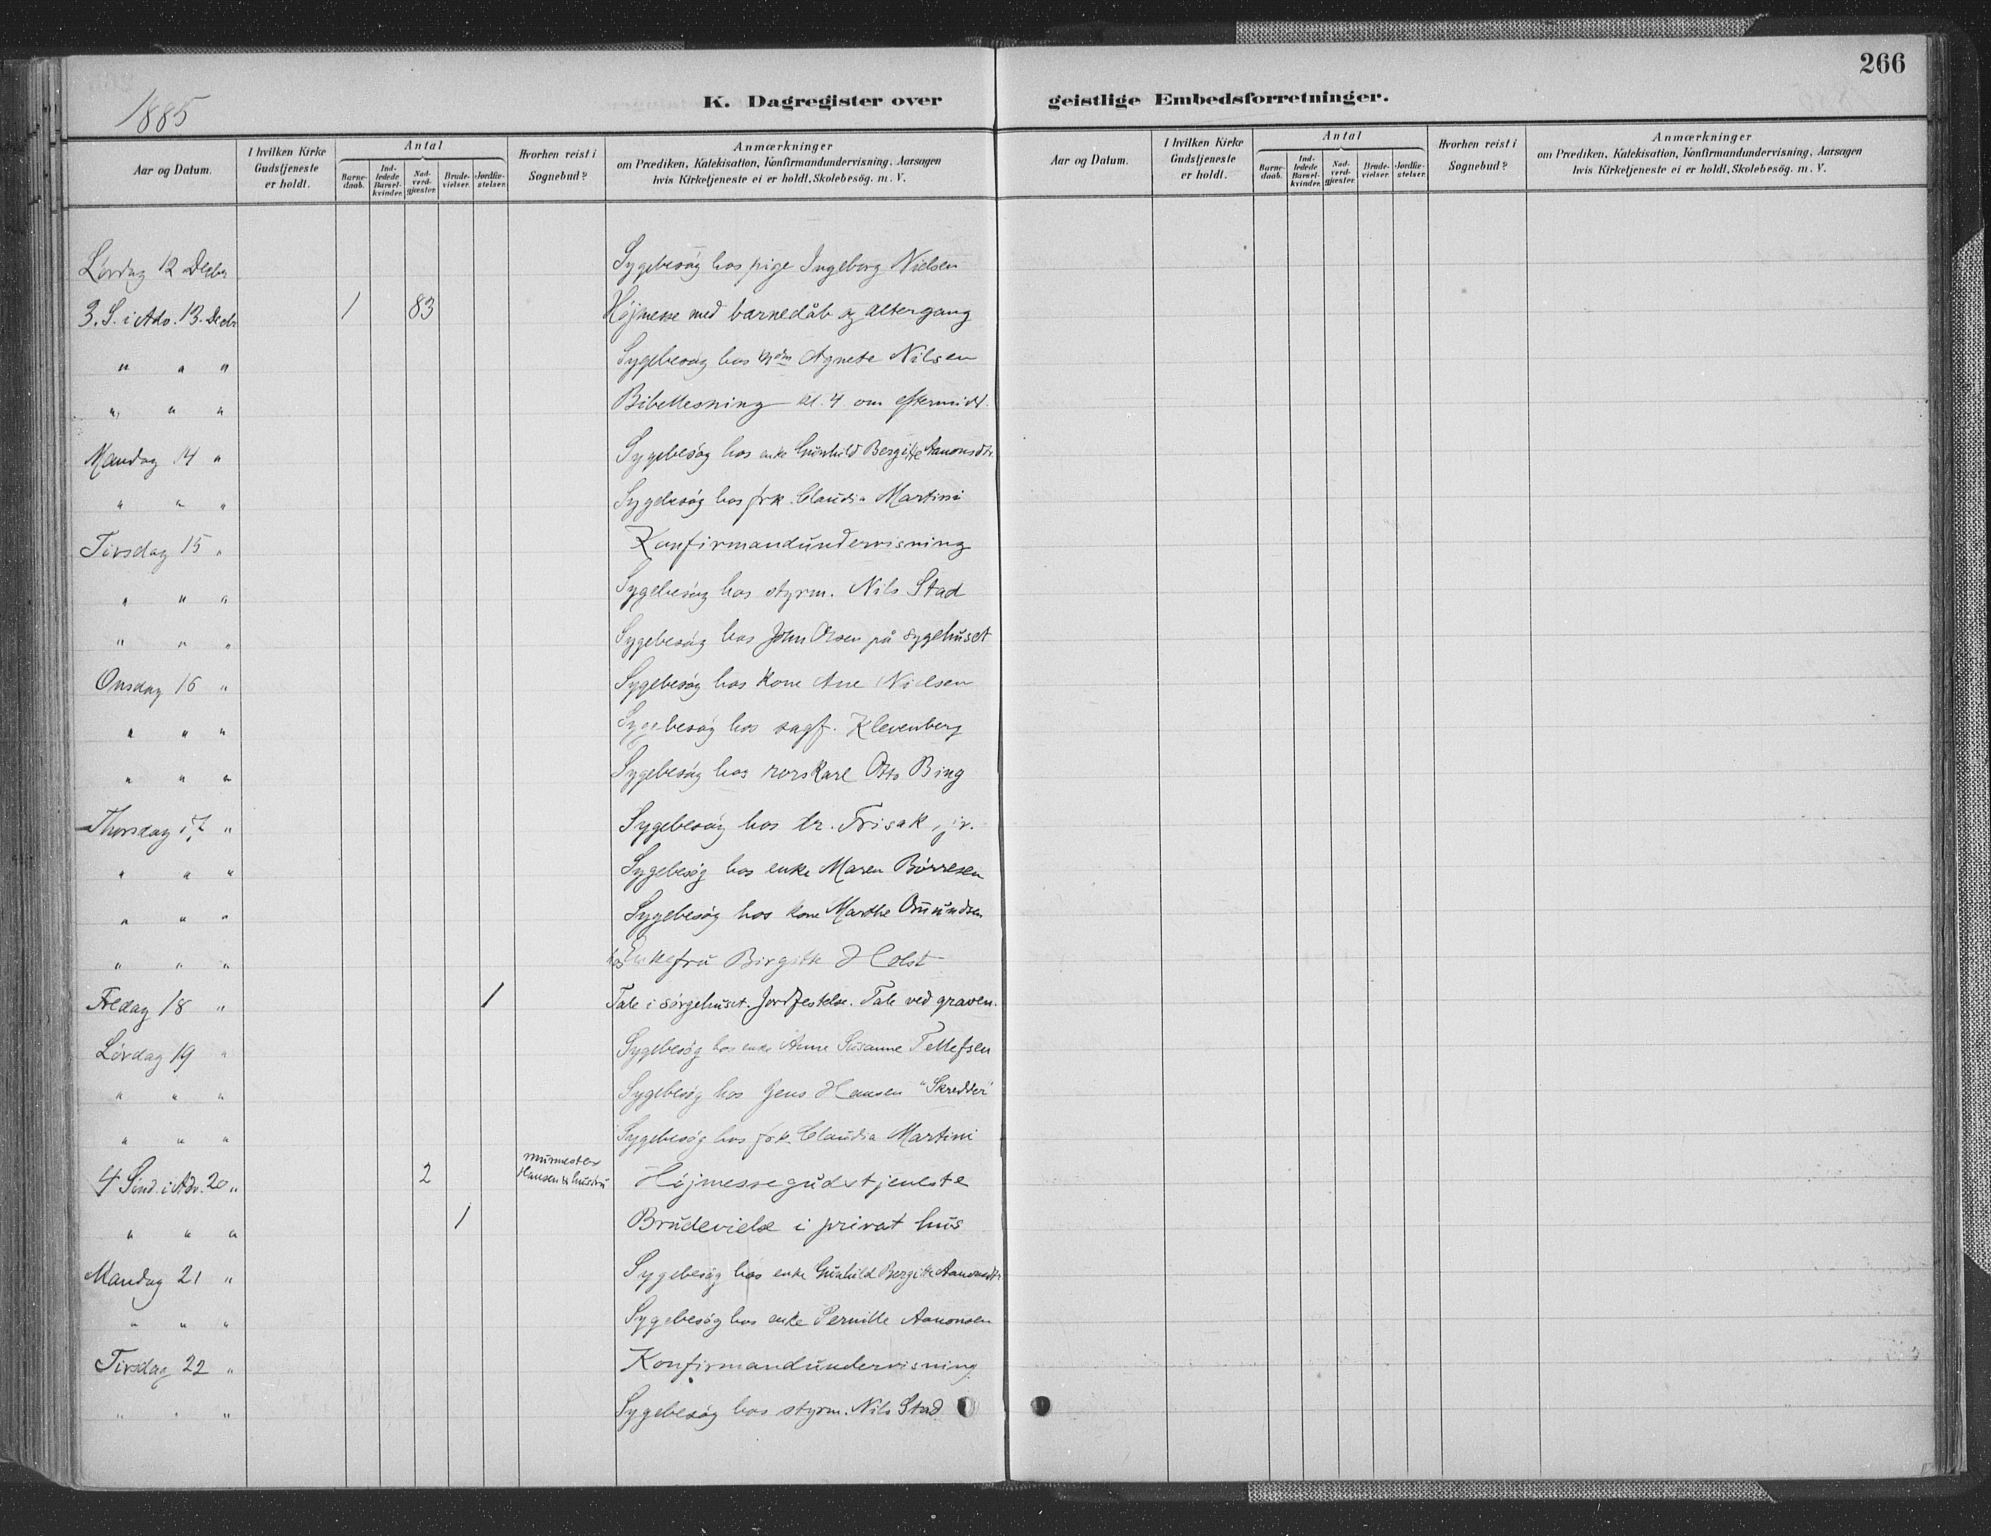 266
1885
K. Dagregister over geistlige Embedsforretninger.
Aar og Datum. I hvilken Kirke Gudstjeneste er holdt. Antal Barnedaab. Indledede Barselkvinder. Nadverdgjæster. Brudevielser. Jordfæstelser. Hvorhen reist i Sognebud? Anmærkninger om Prædiken, Katekisation, Konfirmandundervisning, Aarsagen hvis Kirketjeneste ei er holdt, Skolebesög. m. V.
Aar og Datum. I hvilken Kirke Gudstjeneste er holdt. Antal Barnedaab. Indledede Barselkvinder. Nadverdgjæster. Brudevielser. Jordfæstelser. Hvorhen reist i Sognebud? Anmærkninger om Prædiken, Katekisation, Konfirmandundervisning, Aarsagen hvis Kirketjeneste ei er holdt, Skolebesög. m. V.
Lørdag 12 Decbr Sygebesøg hos pige Ingeborg Nielsen
3. S. i Adv. 13. Decbr 1 83 Højmesse med barnedåb og altergang
" " " Sygebesøg hos Agnete Nilsen
" " " Bibellesning kl. 4 om eftermidd.
Mandag 14 " Sygebesøg hos enke Gunhild Bergitte Aanonsdtr.
" " " Sygebesøg hos frk. Claudia Martini
Tirsdag 15 " Konfirmandundervisning
" " " Sygebesøg hos styrm. Nils Stad
" " " Sygebesøg hos John Olsen på sygehuset
Onsdag 16 " Sygebesøg hos kone Ane Nielsen
" " " Sygebesøg hos sagf. Klevenberg
" " " Sygebesøg hos rorskarl Otto Bing
Thorsdag 17 " Sygebesøg hos dr. Frisak, jr.
" " " Sygebesøg hos enke Maren Børresen
" " " Sygebesøg hos kone Marthe Omundsen
" " " hos Enkefru Birgitte Holst
Fredag 18 " 1 Tale i sørgehuset. Jordfestelse. Tale ved graven.
Lørdag 19 " Sygebesøg hos enke Anne Susanne Tellefsen
" " " Sygebesøg hos Jens Hansen "Skredder"
" " " Sygebesøg hos frk. Claudia Martini
4 Sønd. i Adv. 20 " 2 murmester Hansen & hustru Højmessegudstjeneste
" " " 1 Brudevielse i privat hus
Mandag 21 " Sygebesøg hos enke Gunhild Bergitte Aanonsdtr
" " " Sygebesøg hos enke Pernille Aanonsen
Tirsdag 22 " Konfirmandundervisning
" " " Sygebesøg hos styrm. Nils Stad